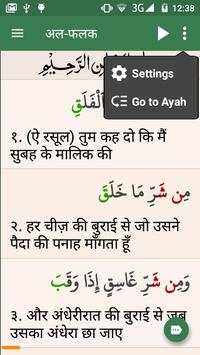 3G 12:38
अल-फलक
Settings
Go to Ayah
الْفَلَقِ
१. (ऐ रसूल) तुम कह दो कि मैं
सुबह के मालिक की
مِن شَرِّ مَا خَلَقَ
२. हर चीज़ की बुराई से जो उसने
पैदा की पनाह माँगता हूँ
وَمِن شَرِّ غَاسِقٍ إِذَا وَقَبَ
३. और अंधेरीरात की बुराई से जब
उसका अंधेरा छा जाए